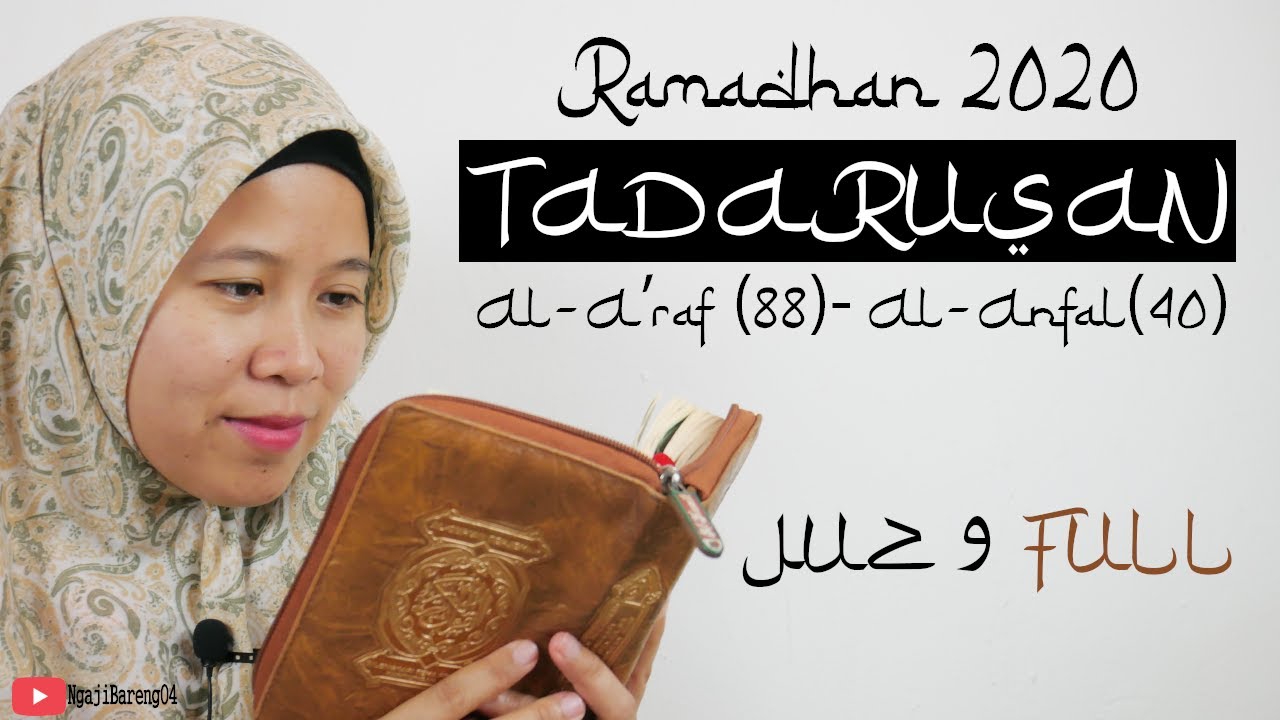 Ramadhan 2020
TADARUSAN
Al-A'raf (88)- Al-Anfal(40)
JUZ 9 FULL
NgajiBareng04